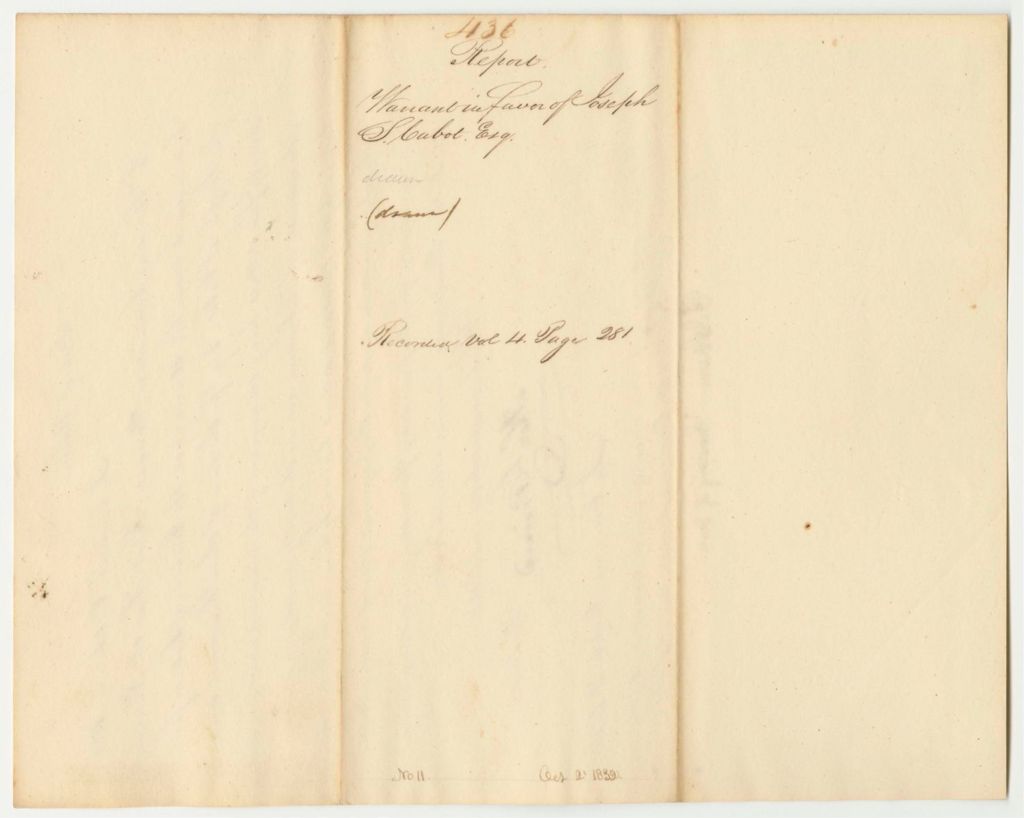 436
Report.
Warrant in favor of Joseph
S. Cabot. Esq.
drawn
(drawn)
Recorded Vol 4. Page 281
No 11.
Oct 2 1832